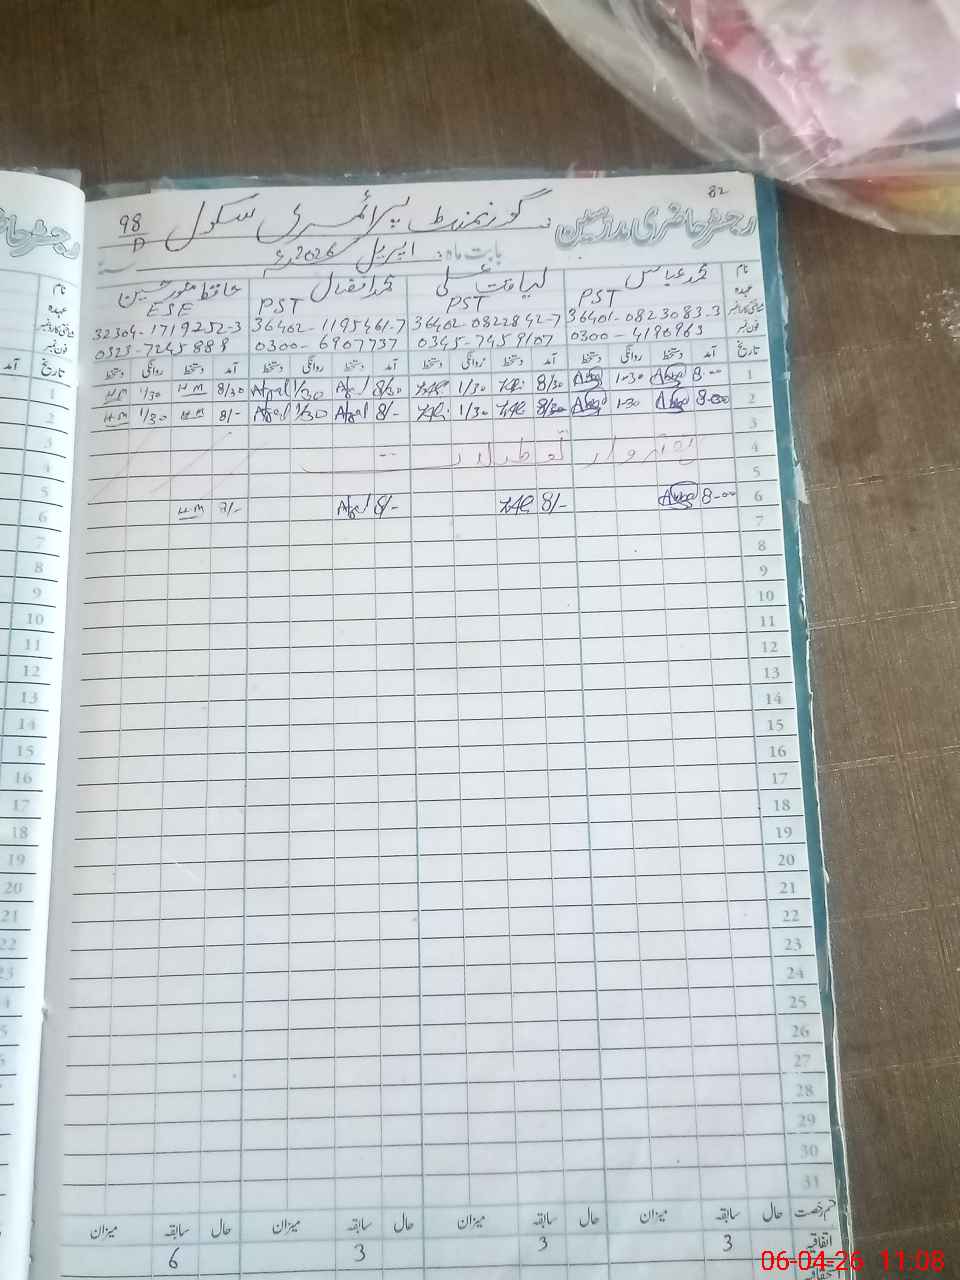 82
رجسٹر حاضری مدرسین: گورنمنٹ پرائمری سکول 98/D
بابت ماہ: اپریل 2026ء سنہ
نام محمد عباس لیاقت علی محمد افضال حافظ منور حسین
عہدہ PST PST PST ESE
شناختی کارڈ نمبر 36401-0823083-3 36402-0822842-7 36402-1195461-7 32304-1719252-3
فون نمبر 0300-4190963 0345-7459107 0300-6907737 0325-7245888
تاریخ آمد دستخط روانگی دستخط آمد دستخط روانگی دستخط آمد دستخط روانگی دستخط آمد دستخط روانگی دستخط
1 8-00 1-30 8/30 1/30 8/30 Afzal 1/30 Afzal 8/30 H.M 1/30 H.M
2 8-00 1-30 8/30 1/30 8/- Afzal 1/30 Afzal 8/- H.M 1/30 H.M
3
4 اتوار
5
6 8-00 8/- 8/- Afzal 8/- H.M
7
8
9
10
11
12
13
14
15
16
17
18
19
20
21
22
23
24
25
26
27
28
29
30
31
قسم رخصت حال سابقہ میزان حال سابقہ میزان حال سابقہ میزان حال سابقہ میزان
اتفاقیہ 3 3 3 6
06-04-26 11:08